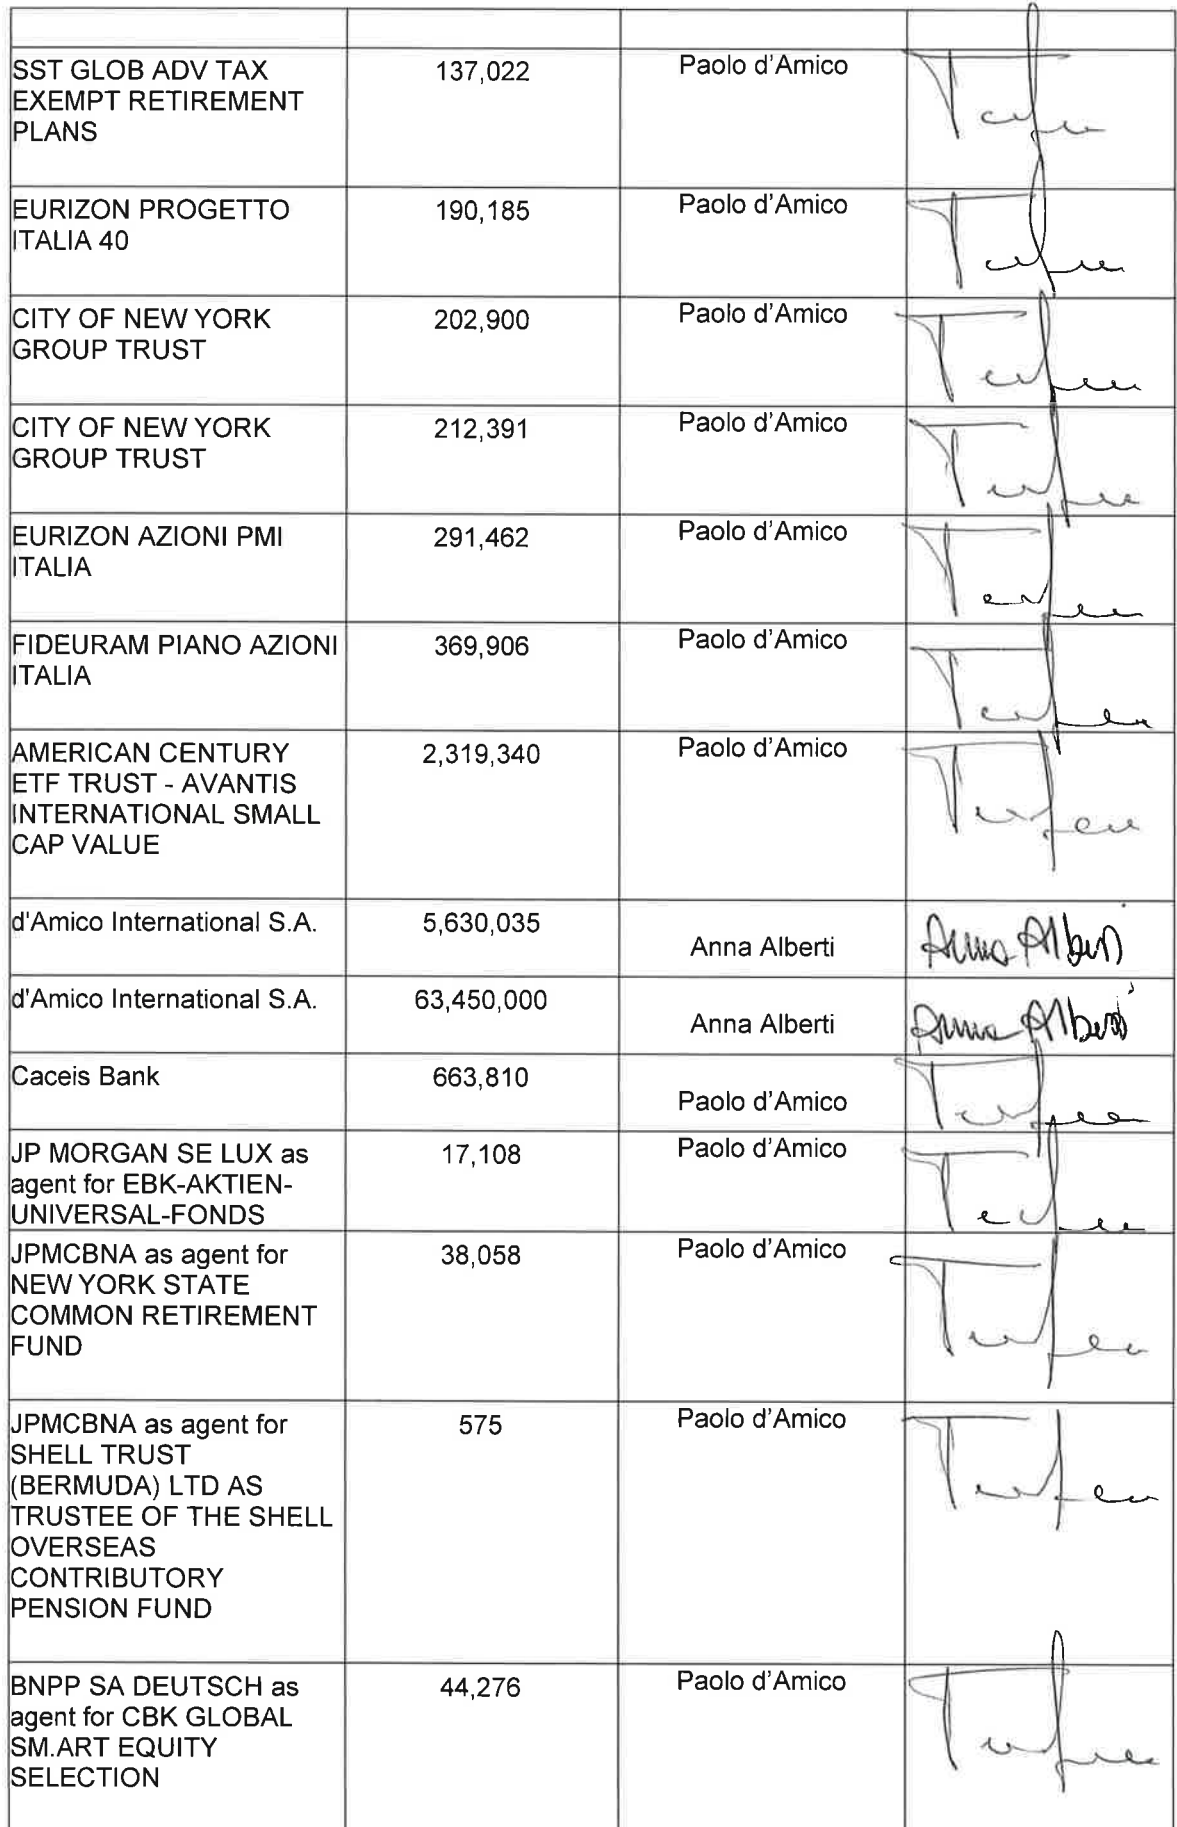 SST GLOB ADV TAX
EXEMPT RETIREMENT
PLANS
137,022
Paolo d'Amico
EURIZON PROGETTO
ITALIA 40
190,185
Paolo d'Amico
CITY OF NEW YORK
GROUP TRUST
202,900
Paolo d'Amico
CITY OF NEW YORK
GROUP TRUST
212,391
Paolo d'Amico
EURIZON AZIONI PMI
ITALIA
291,462
Paolo d'Amico
FIDEURAM PIANO AZIONI
ITALIA
369,906
Paolo d'Amico
AMERICAN CENTURY
ETF TRUST - AVANTIS
INTERNATIONAL SMALL
CAP VALUE
2,319,340
Paolo d'Amico
d'Amico International S.A.
5,630,035
Anna Alberti
Anna Alberti
d'Amico International S.A.
63,450,000
Anna Alberti
Anna Alberti
Caceis Bank
663,810
Paolo d'Amico
JP MORGAN SE LUX as
agent for EBK-AKTIEN-
UNIVERSAL-FONDS
17,108
Paolo d'Amico
JPMCBNA as agent for
NEW YORK STATE
COMMON RETIREMENT
FUND
38,058
Paolo d'Amico
JPMCBNA as agent for
SHELL TRUST
(BERMUDA) LTD AS
TRUSTEE OF THE SHELL
OVERSEAS
CONTRIBUTORY
PENSION FUND
575
Paolo d'Amico
BNPP SA DEUTSCH as
agent for CBK GLOBAL
SM.ART EQUITY
SELECTION
44,276
Paolo d'Amico